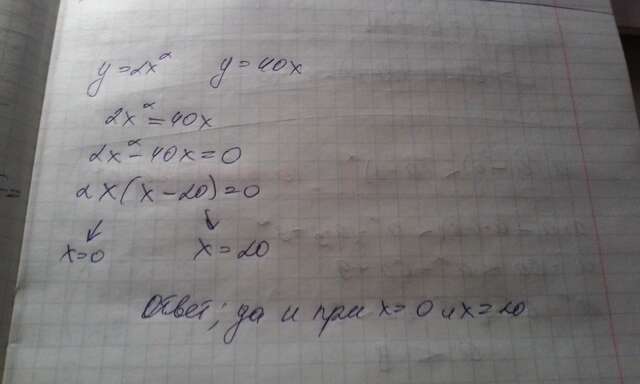 y = 2x² y = 40x
2x² = 40x
2x² - 40x = 0
2x(x - 20) = 0
↙ ↓
x = 0 x = 20
Ответ; да и при x = 0 и x = 20